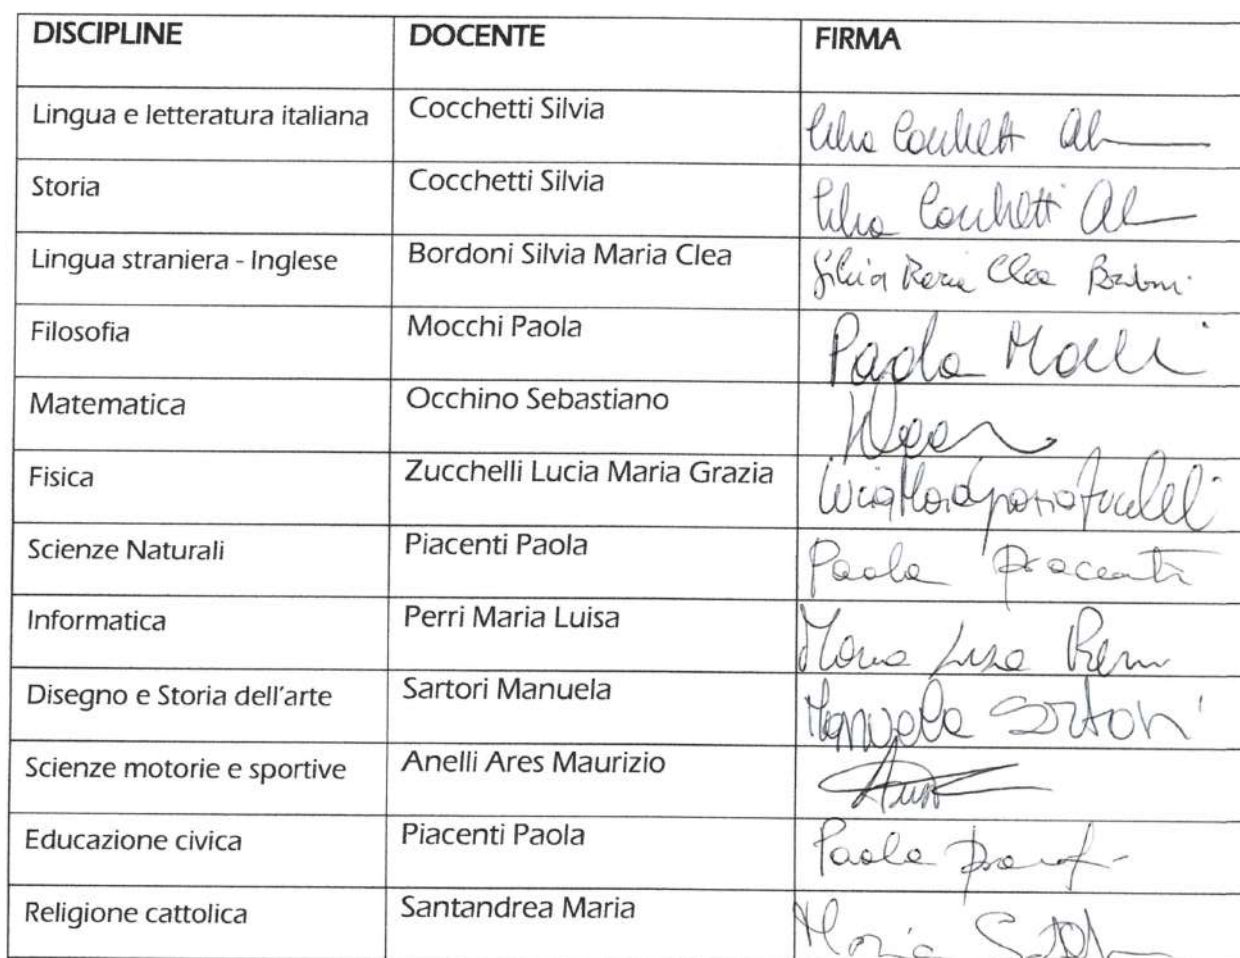 DISCIPLINE DOCENTE FIRMA
Lingua e letteratura italiana Cocchetti Silvia
Storia Cocchetti Silvia
Lingua straniera - Inglese Bordoni Silvia Maria Clea Silvia Maria Clea Bordoni
Filosofia Mocchi Paola Paola Mocchi
Matematica Occhino Sebastiano
Fisica Zucchelli Lucia Maria Grazia Lucia Maria Grazia Zucchelli
Scienze Naturali Piacenti Paola Paola Piacenti
Informatica Perri Maria Luisa Maria Luisa Perri
Disegno e Storia dell'arte Sartori Manuela Manuela Sartori
Scienze motorie e sportive Anelli Ares Maurizio
Educazione civica Piacenti Paola Paola
Religione cattolica Santandrea Maria Maria